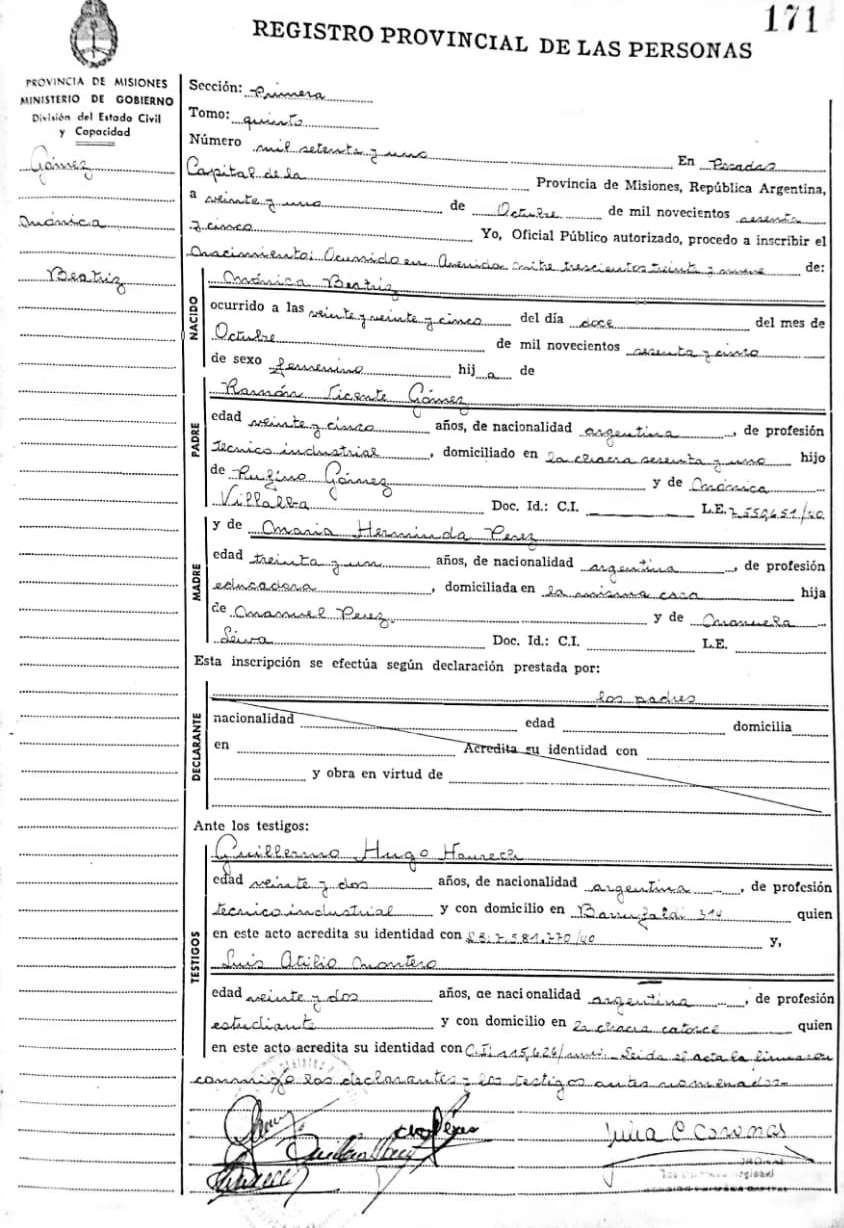 171
REGISTRO PROVINCIAL DE LAS PERSONAS
PROVINCIA DE MISIONES
MINISTERIO DE GOBIERNO
División del Estado Civil
y Capacidad
Gómez
Mónica
Beatriz
Sección: Primera
Tomo: quinto
Número mil setenta y uno En Posadas
Capital de la Provincia de Misiones, República Argentina,
a veinte y uno de Octubre de mil novecientos sesenta
y cinco Yo, Oficial Público autorizado, procedo a inscribir el
nacimiento: Ocurrido en Avenida mitre trescientos treinta y nueve de:
NACIDO
Mónica Beatriz
ocurrido a las veinte y veinte y cinco del día doce del mes de
Octubre de mil novecientos sesenta y cinco
de sexo femenino hij a de
PADRE
Ramón Vicente Gómez
edad veinte y cinco años, de nacionalidad argentina, de profesión
tecnico industrial, domiciliado en la chacra sesenta y uno hijo
de Rufino Gómez y de Mónica
Villalba Doc. Id.: C.I. L.E. 7.550,651/40
MADRE
y de Maria Herminda Perez
edad treinta y un años, de nacionalidad argentina, de profesión
educadora, domiciliada en la misma casa hija
de Manuel Perez y de Manuela
Leiva Doc. Id.: C.I. L.E.
Esta inscripción se efectúa según declaración prestada por:
DECLARANTE
los padres
nacionalidad edad domicilia
en Acredita su identidad con
y obra en virtud de
Ante los testigos:
TESTIGOS
Guillermo Hugo
edad veinte y dos años, de nacionalidad argentina, de profesión
tecnico industrial y con domicilio en 314 quien
en este acto acredita su identidad con L.E. 7.581.770/40 y,
Luis Atilio Montero
edad veinte y dos años, de nacionalidad argentina, de profesión
estudiante y con domicilio en la chacra catorce quien
en este acto acredita su identidad con C.I. 115,626/mnes. Leida el acta la firmaron
conmigo los declarantes y los testigos antes nomenados-
Julia C Coronas